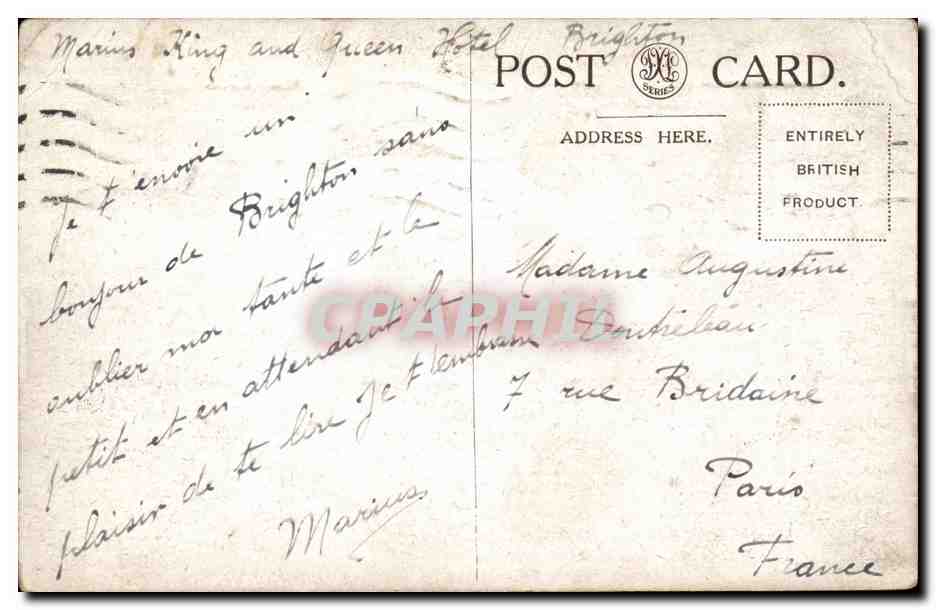 Marius King and Queen Hôtel Brighton
POST CARD.
SERIES
ADDRESS HERE.
ENTIRELY
BRITISH
PRODUCT.
Je t'envoie un
bonjour de Brighton sans
oublier ma tante et le
petit et en attendant le
plaisir de te lire Je t'embrasse
Marius
Madame Augustine
7 rue Bridaine
Paris
France
CPAPHIL